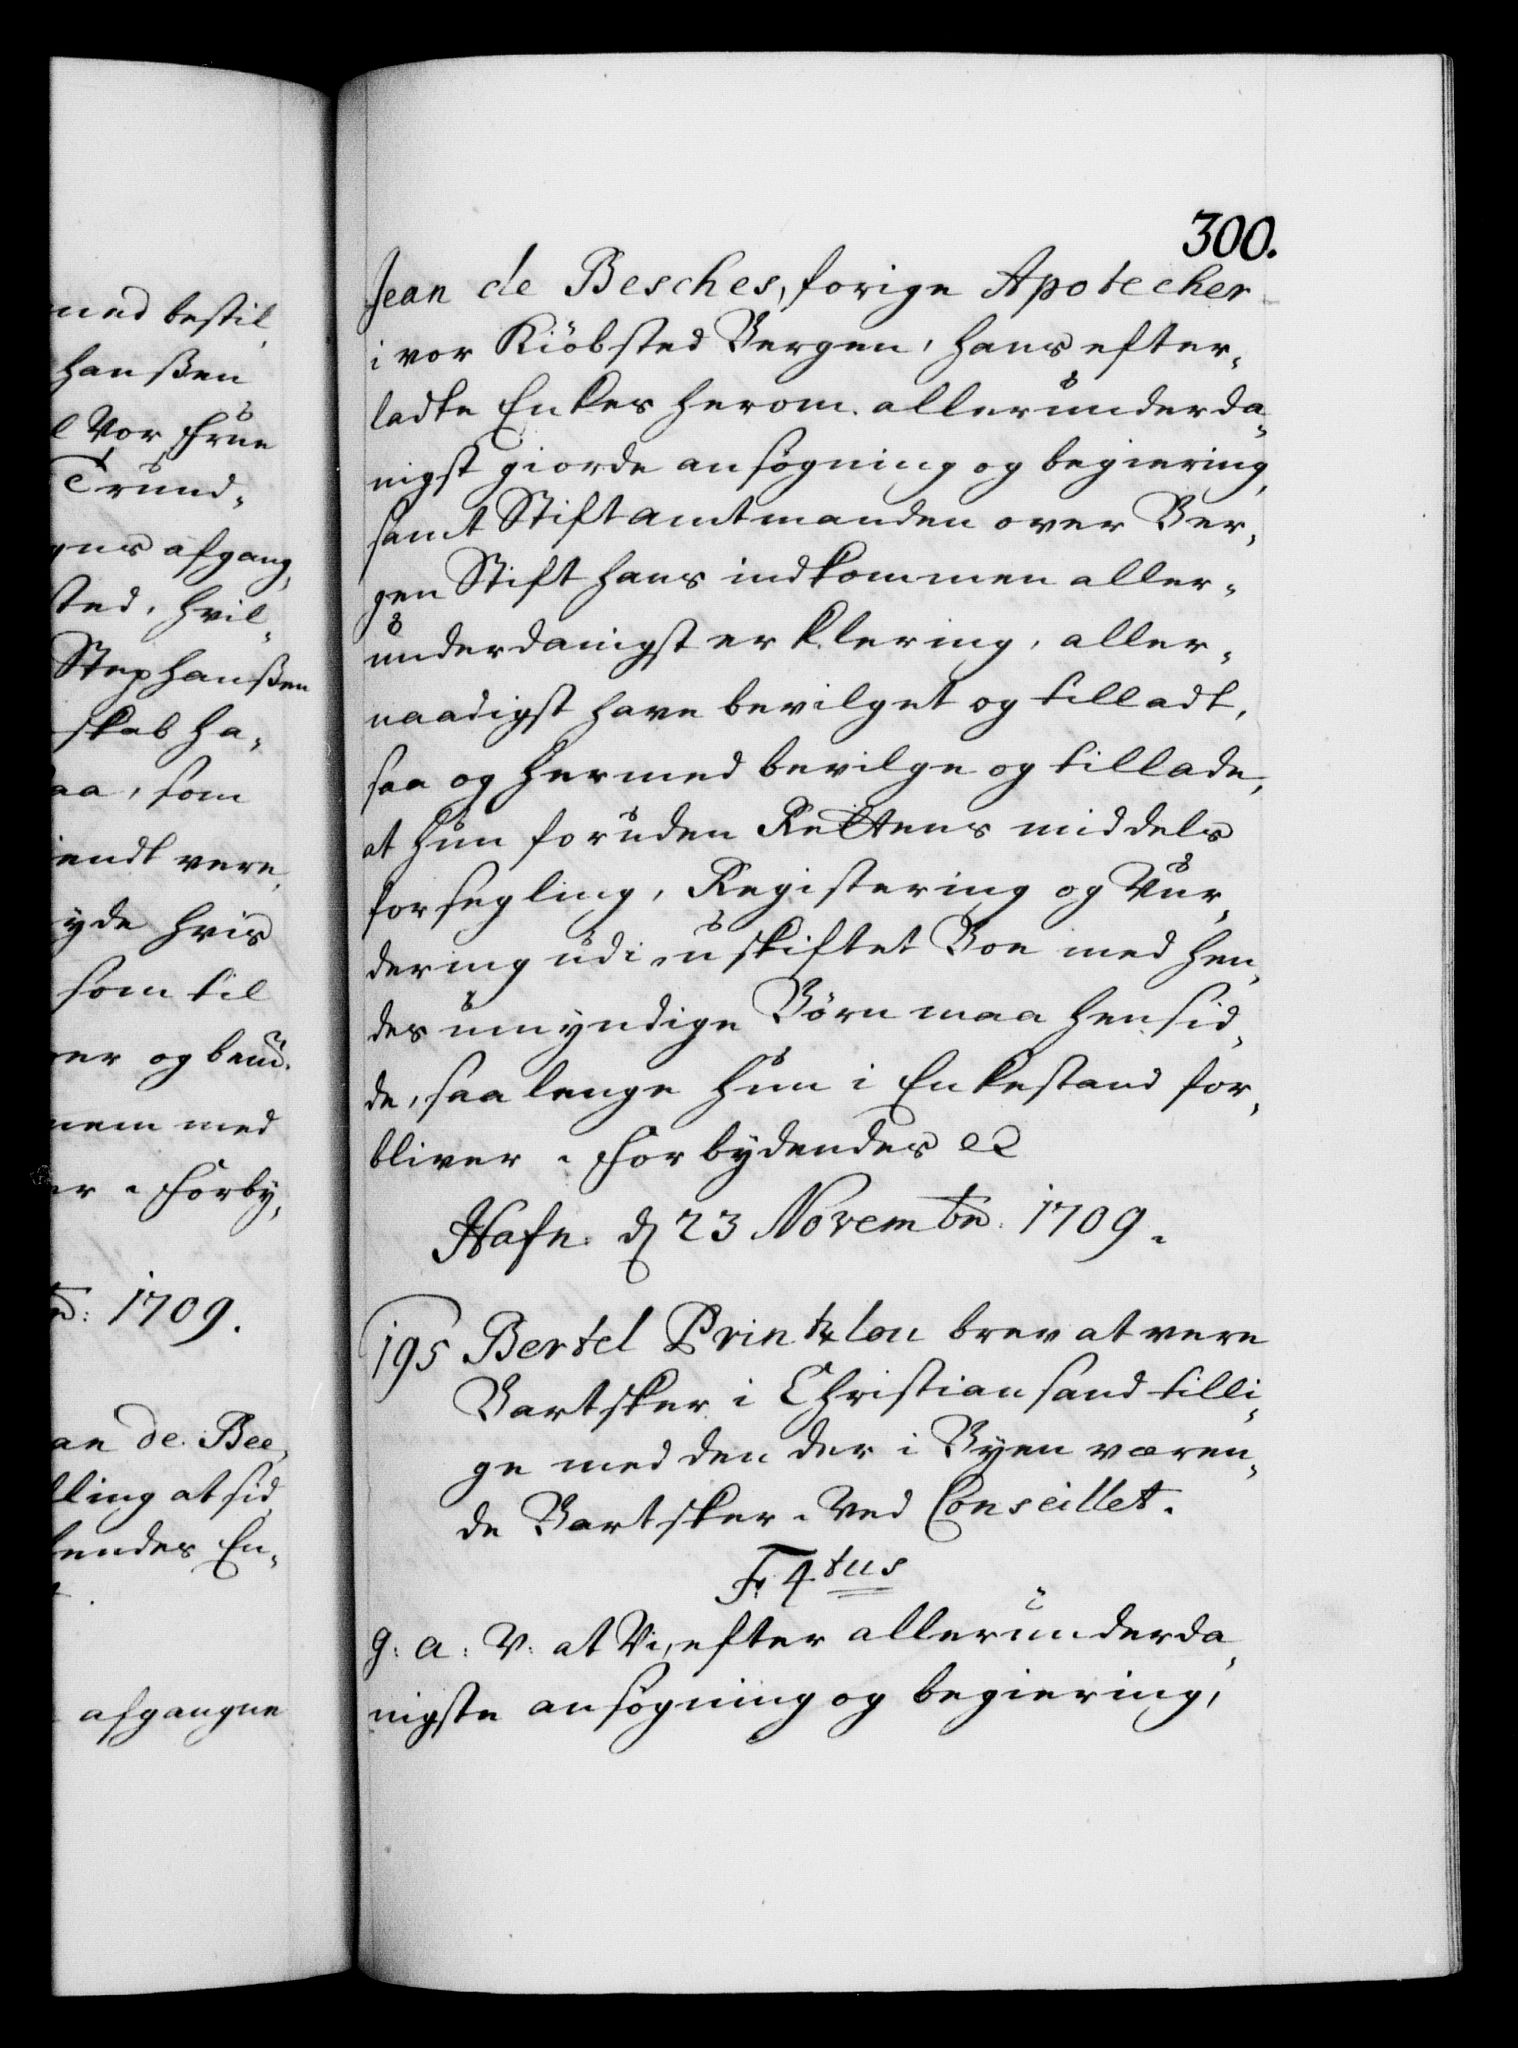 ned bestil
hanßen
l Vor Frue
Trund-
gns afgang,
sted, hvil-
Stephanßen
skab ha-
aa, som
iendt vere,
yde hvis
som til
er og beviis
nem med
er. Forby,
1709.
an de Bee,
ling at sid
hendes En-
afgangne
300.
Jean de Besches, forige Apotecher
i vor Kiöbsted Bergen, hans efter-
ladte Enkes herom allerunderda,
nigst giorde ansøgning og begiering,
samt Stiftamtmanden over Ber,
gen Stift hans indkommen aller-
underdanigst erklering, aller-
naadigst have bevilget og tilladt,
saa og hermed bevilge og tillade,
at hun foruden Rettens middels
forsegling, Registering og Vur,
dering udi uskiftet Boe med hen,
des umyndige Børn maa hensid,
de, saa lenge hun i Enkestand for,
bliver. Forbydendes etc
Hafn. d 23 Novembr. 1709.
195 Bertel Printzlou brev at vere
Bartsker i Christiansand tilli,
ge med den der i Byen væren,
de Bartsker. Ved Conseillet.
F. 4tus
G: A: V: at Vi, efter allerunderda,
nigste ansøgning og begiering,